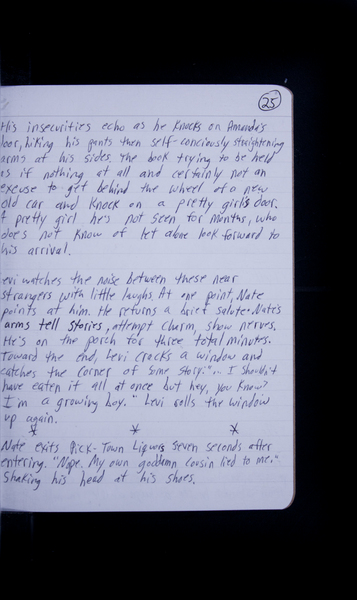 25
His insecurities echo as he knocks on Amanda's
door, hiking his pants then self-conciously straightening
arms at his sides. The book trying to be held
as if nothing at all and certainly not an
excuse to get behind the wheel of a new
old car and knock on a pretty girl's door.
A pretty girl he's not seen for months, who
does not know of let alone look forward to
his arrival.
Levi watches the noise between these near
strangers with little laughs. At one point, Nate
points at him. He returns a brief salute. Nate's
arms tell stories, attempt charm, show nerves.
He's on the porch for three total minutes.
Toward the end, Levi cracks a window and
catches the corner of some story: "... I shouldn't
have eaten it all at once but hey, you know?
I'm a growing boy." Levi rolls the window
up again.
* * *
Nate exits Pick-Town Liquors seven seconds after
entering. "Nope. My own goddamn cousin lied to me."
Shaking his head at his shoes.